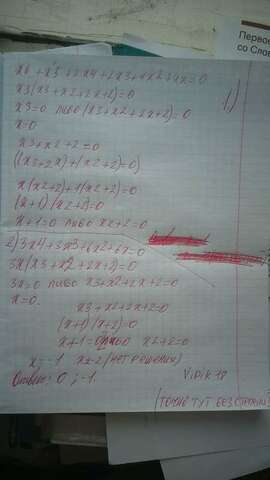 Первое
со Слов
1)
x6 + x5 + 2x4 + 2x3 + 4x2 + 4x = 0
x3(x3 + x2 + 2x + 2) = 0
x3 = 0 либо (x3 + x2 + 2x + 2) = 0
x = 0
x3 + x2 + 2 = 0
((x3 + 2x) + (x2 + 2) = 0)
x(x2 + 2) + 1(x2 + 2) = 0
(x + 1)(x2 + 2) = 0
x + 1 = 0 либо x2 + 2 = 0
2) 3x4 + 3x3 + 6x2 + 6x = 0
3x(x3 + x2 + 2x + 2) = 0
3x = 0 либо x3 + x2 + 2x + 2 = 0
x = 0
x3 + x2 + 2x + 2 = 0
(x + 1)(x + 2) = 0
x + 1 = 0 либо x2 + 2 = 0
x = -1 x ≠ 2 (нет решения)
Ответ: 0; -1.
Vipik 18